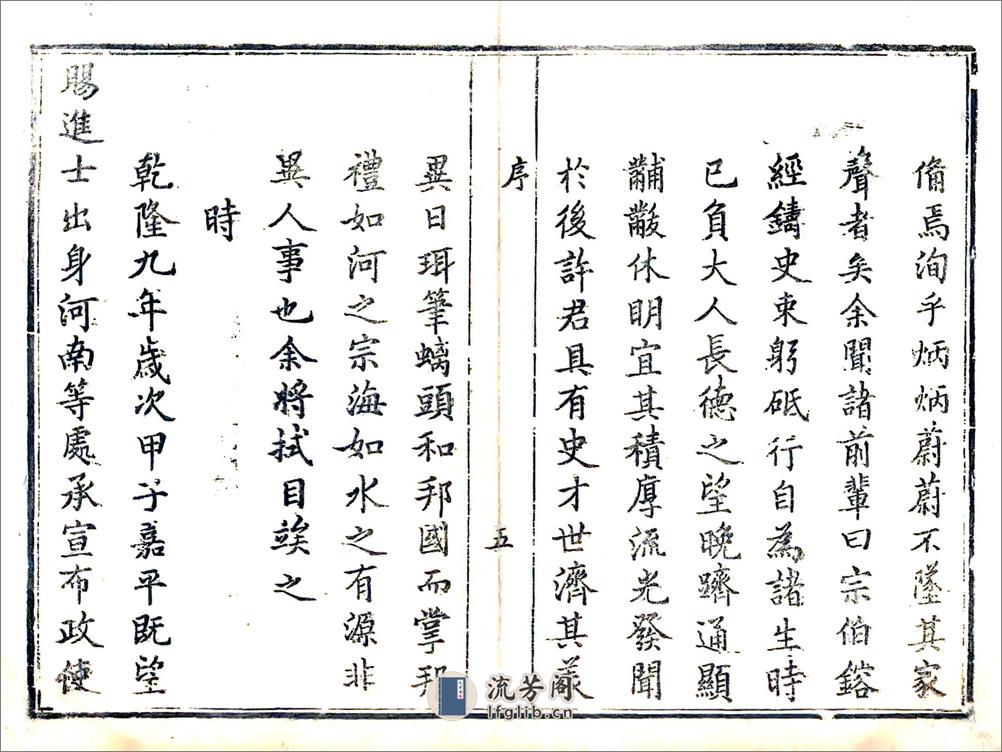 備焉洵乎炳炳蔚蔚不墜其家
聲者矣余聞諸前輩曰宗伯鎔
經鑄史束躬砥行自為諸生時
已負大人長德之望晚躋通顯
黼黻休明宜其積厚流光發聞
於後許君具有史才世濟其美
序
五
異日珥筆螭頭和邦國而掌邦
禮如河之宗海如水之有源非
異人事也余將拭目竢之
時
乾隆九年歲次甲子嘉平既望
賜進士出身河南等處承宣布政使
流芳阁
lfglib.cn